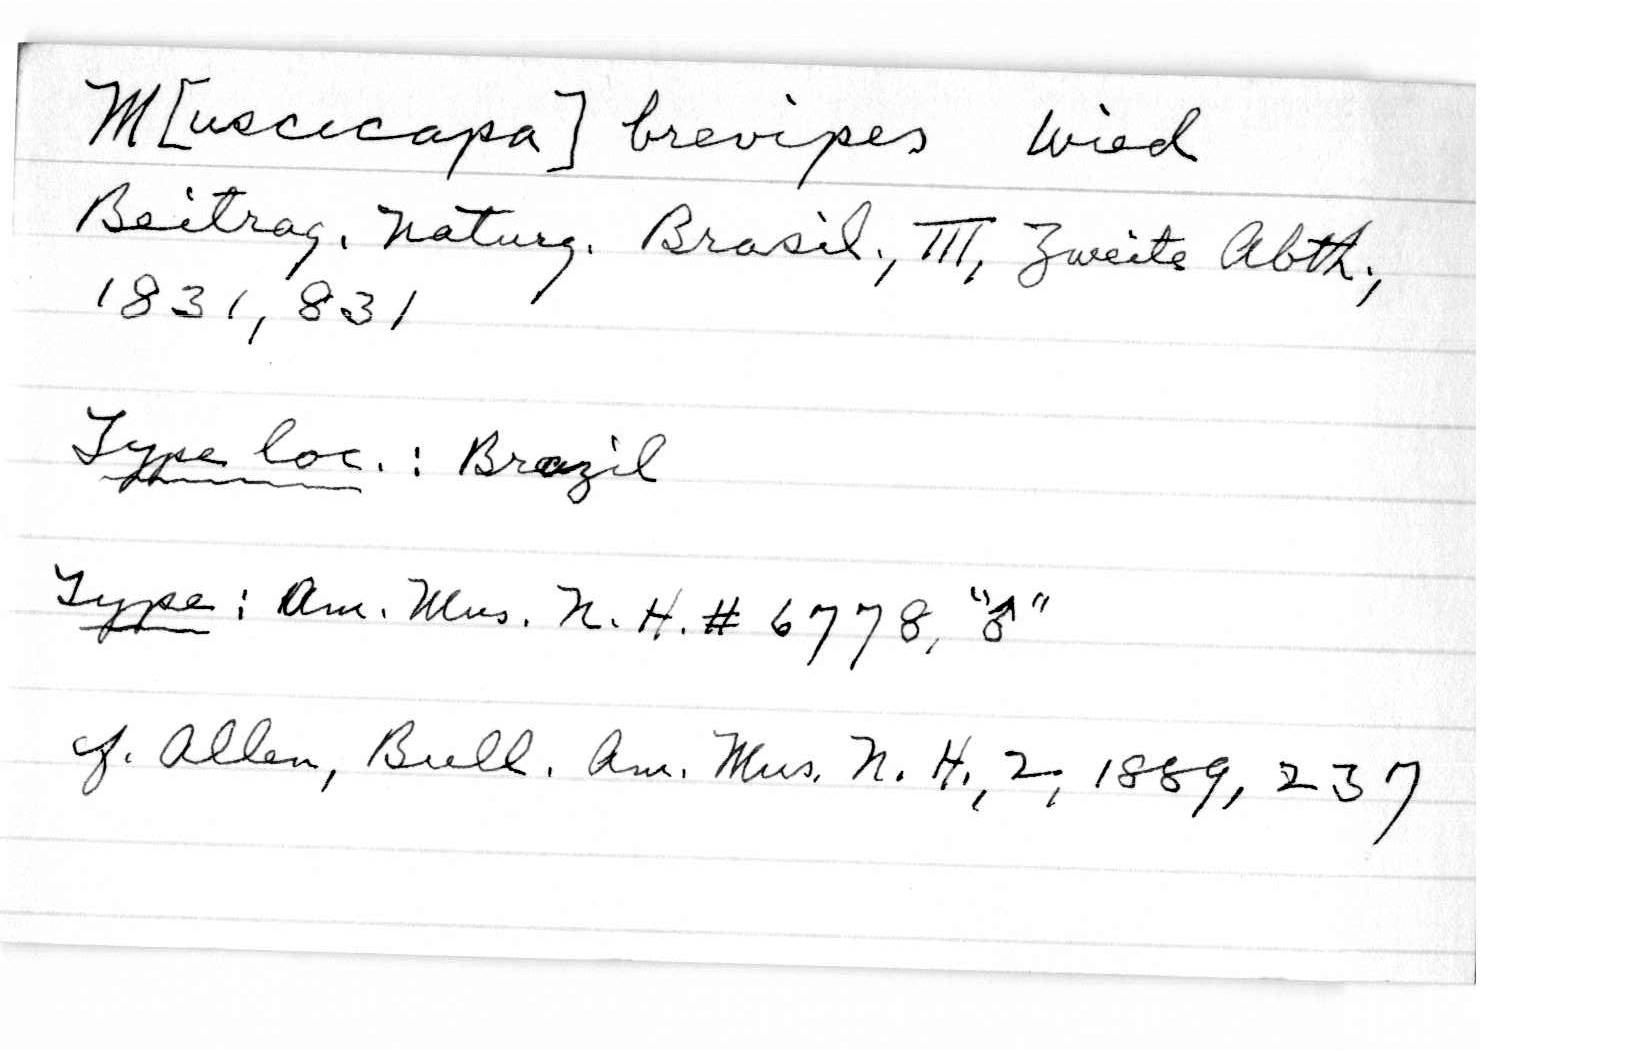 M[uscicapa] brevipes Wied
Beitrag. Naturg. Brasil., III, Zweite Abth.,
1831, 831
Type loc.: Brazil
Type: Am. Mus. N. H. # 6778, "♂"
cf. Allen, Bull. Am. Mus. N. H., 2, 1889, 237